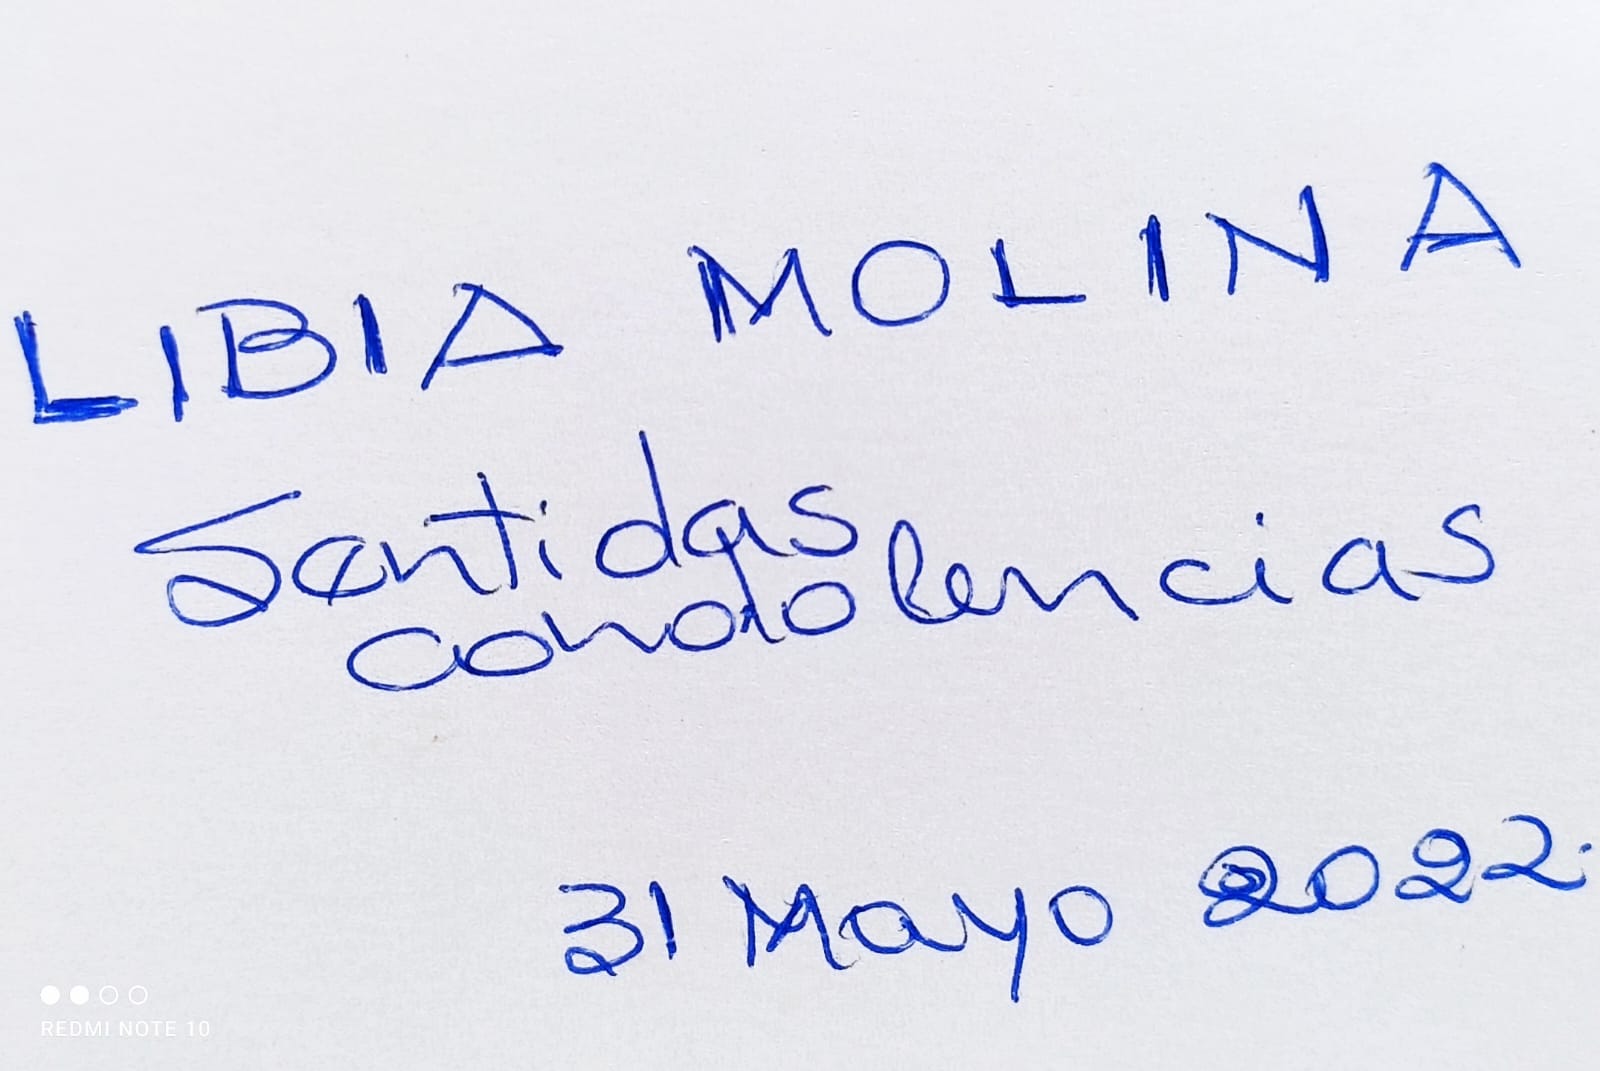 LIBIA MOLINA
Sentidas
condolencias
31 Mayo 2022.
REDMI NOTE 10